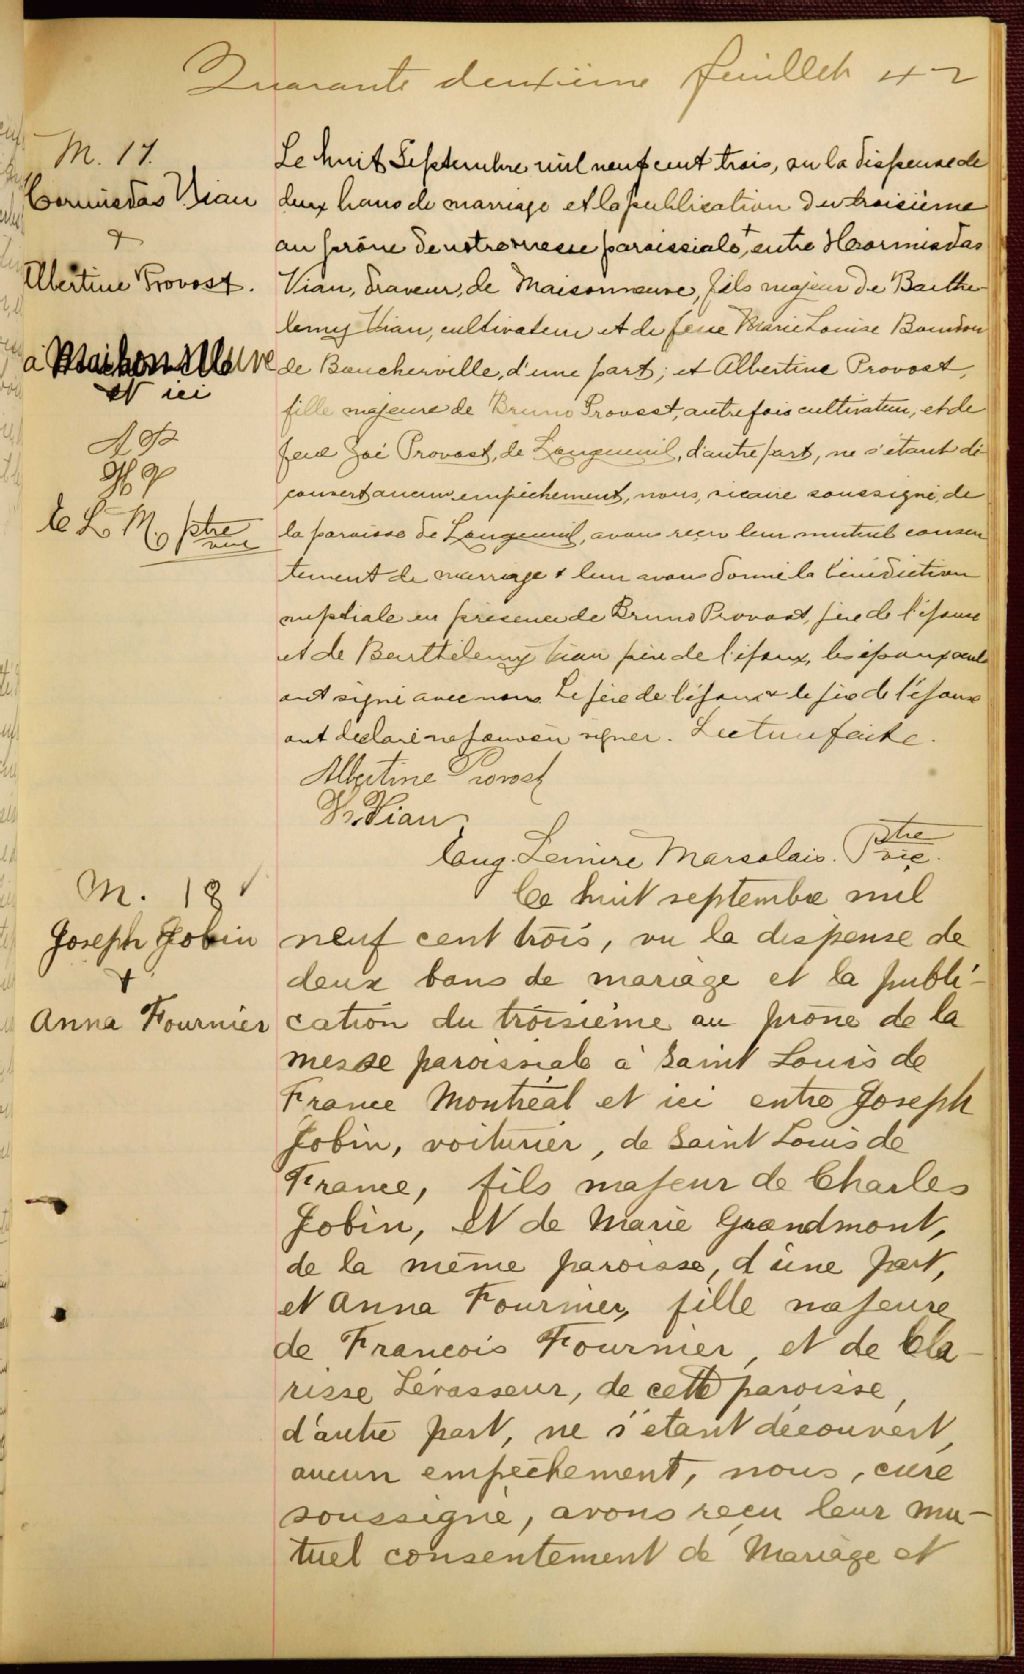 Quarante deuxième feuillet 42
M. 17.
Hormisdas Vian
+
Albertine Provost.
à Maisonneuve
et ici
A P
H V
E L M ptre
vic
Le huit Septembre mil neuf cent trois, vu la dispense de
deux bans de marriage et la publication du troisième
au prône de notre messe paroissiale,+ entre Hormisdas
Vian, draveur, de Maisonneuve, fils majeur de Barthe-
lemy Vian, cultivateur et de feue Marie Louise Bourdon
de Boucherville, d'une part; et Albertine Provost,
fille majeure de Bruno Provost, autrefois cultivateur, et de
feue Zoé Provost, de Longueuil, d'autre part, ne s'étant dé
couvert aucun empêchement, nous, vicaire soussigné, de
la paroisse de Longueuil, avons reçu leur mutuel consen
tement de marriage & leur avons donné la bénédiction
nuptiale en présence de Bruno Provost, père de l'épouse
et de Barthélemy Vian père de l'époux, les époux seuls
ont signé avec nous. Le père de l'époux & le père de l'épouse
ont déclaré ne pouvoir signer. Lecture faite.
Albertine Provost
H. Vian
Eug. Lemire Marsolais. Ptre
vic.
M. 18
Joseph Jobin
+
Anna Fournier
Ce huit septembre mil
neuf cent trois, vu la dispense de
deux bans de mariage et la publi-
cation du troisième au prône de la
messe paroissiale à Saint Louis de
France Montréal et ici entre Joseph
Jobin, voiturier, de Saint Louis de
France, fils majeur de Charles
Jobin, et de Marie Grandmont,
de la même paroisse, d'une part,
et Anna Fournier, fille majeure
de Francois Fournier, et de Cla-
risse Lévasseur, de cette paroisse,
d'autre part, ne s'étant découvert
aucun empêchement, nous, curé
soussigné, avons reçu leur mu-
tuel consentement de Mariage et